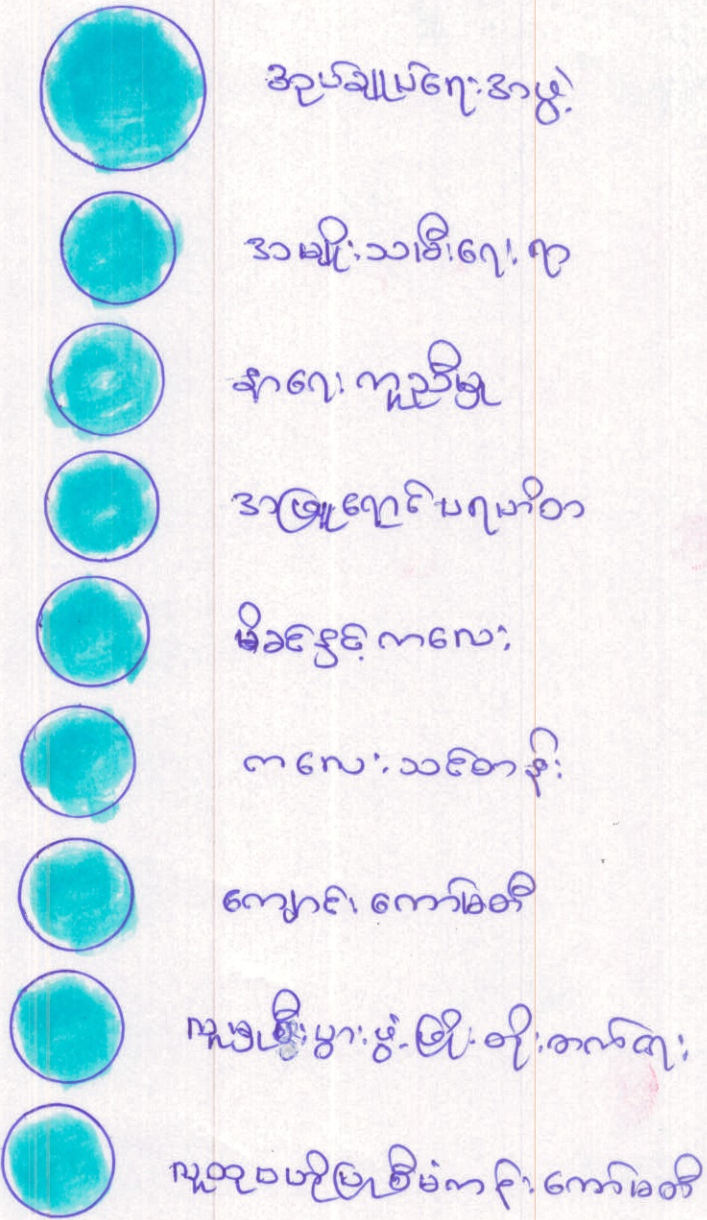 အုပ်ချုပ်ရေးအာဖွဲ့
အာမျိုးသမီးရေးရာ
နာရေးကူညီမှု
အာဖြူရောင်ပရဟိတ
မိခင်နှင့်ကလေး
ကလေးသင်တန်း
ကျောင်းကော်မတီ
လူမှုစီးပွားဖွံ့ဖြိုးတိုးတက်ရေး
လူထုဗဟိုပြုစီမံကန်းကော်မတီ